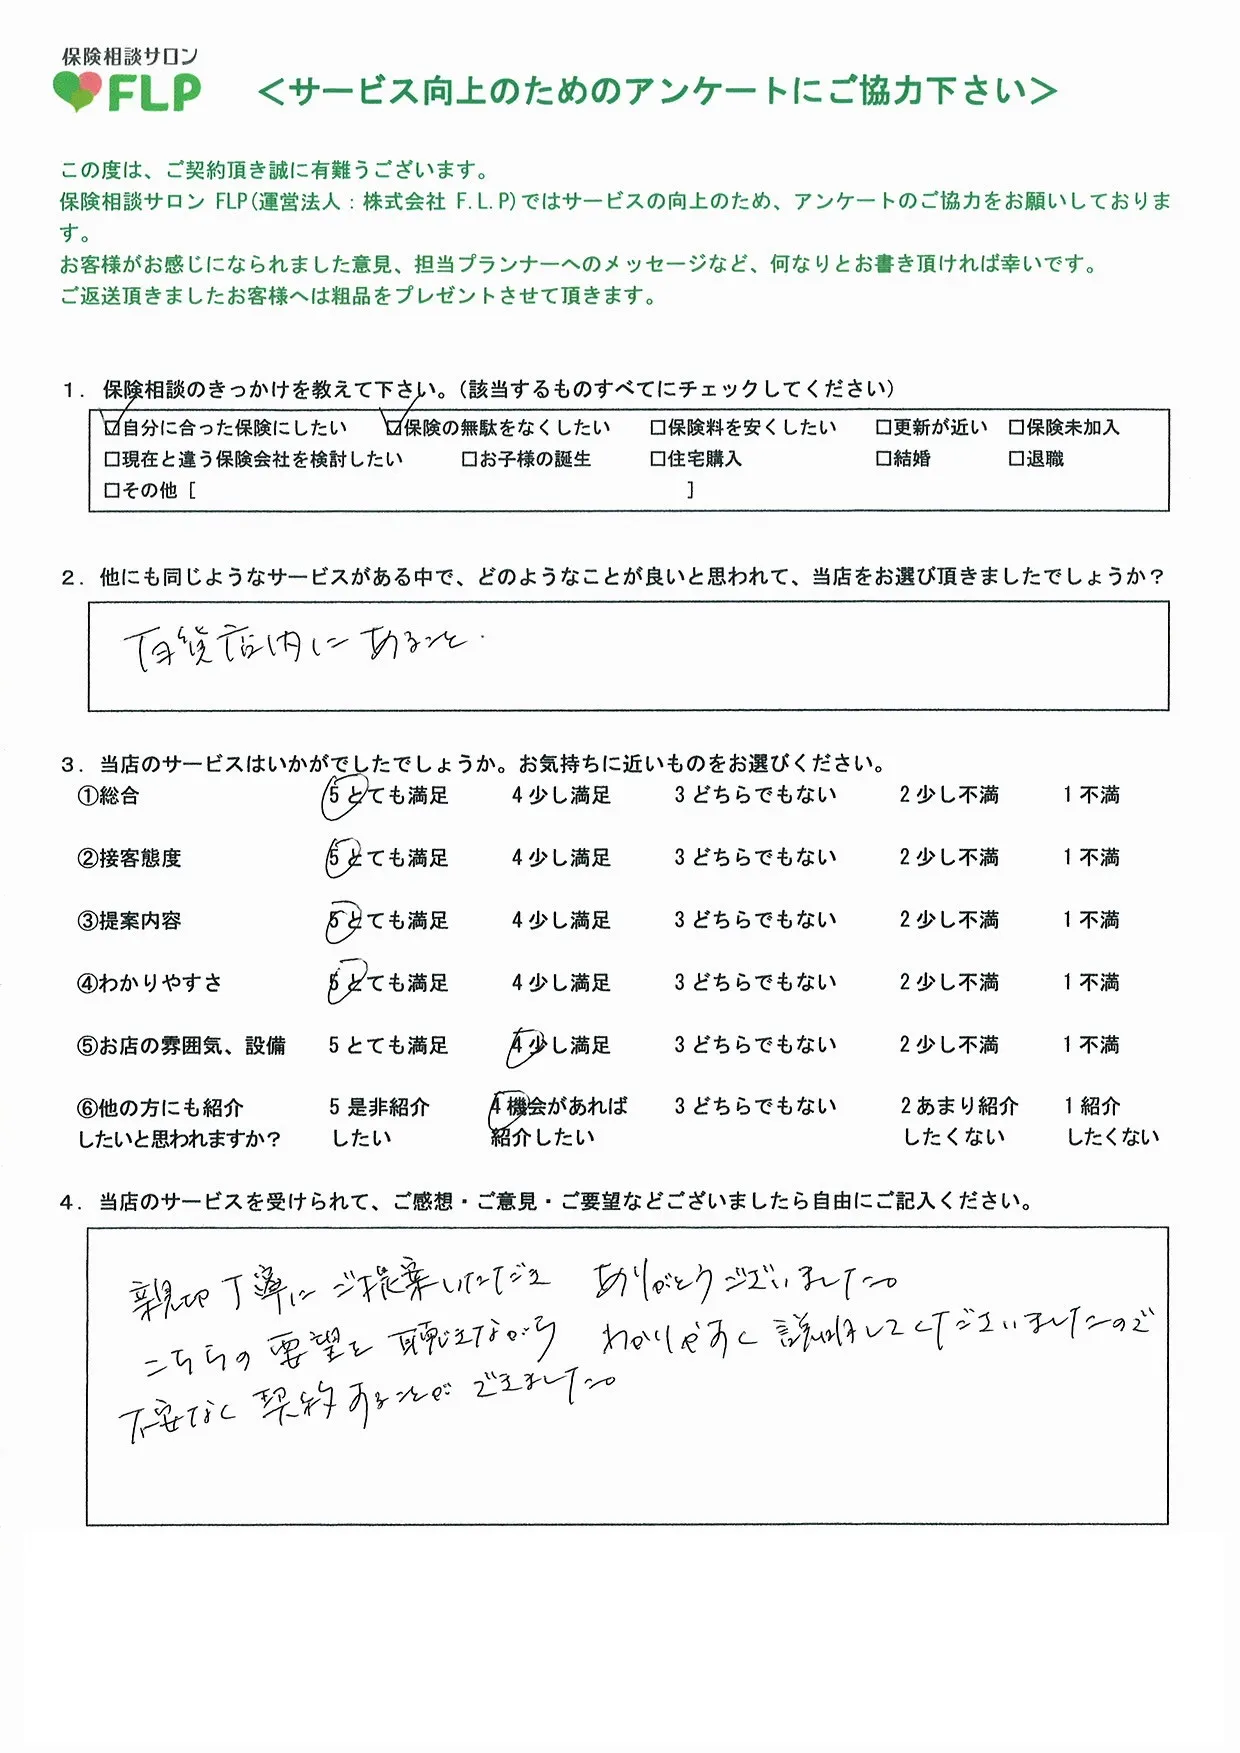 保険相談サロン
FLP
＜サービス向上のためのアンケートにご協力下さい＞
この度は、ご契約頂き誠に有難うございます。
保険相談サロン FLP(運営法人：株式会社 F.L.P)ではサービスの向上のため、アンケートのご協力をお願いしておりま
す。
お客様がお感じになられました意見、担当プランナーへのメッセージなど、何なりとお書き頂ければ幸いです。
ご返送頂きましたお客様へは粗品をプレゼントさせて頂きます。
１．保険相談のきっかけを教えて下さい。(該当するものすべてにチェックしてください)
☑自分に合った保険にしたい ☑保険の無駄をなくしたい □保険料を安くしたい □更新が近い □保険未加入
□現在と違う保険会社を検討したい □お子様の誕生 □住宅購入 □結婚 □退職
□その他 [ ]
２．他にも同じようなサービスがある中で、どのようなことが良いと思われて、当店をお選び頂きましたでしょうか？
百貨店内にあること.
３．当店のサービスはいかがでしたでしょうか。お気持ちに近いものをお選びください。
①総合 5 とても満足 4 少し満足 3 どちらでもない 2 少し不満 1 不満
②接客態度 5 とても満足 4 少し満足 3 どちらでもない 2 少し不満 1 不満
③提案内容 5 とても満足 4 少し満足 3 どちらでもない 2 少し不満 1 不満
④わかりやすさ 5 とても満足 4 少し満足 3 どちらでもない 2 少し不満 1 不満
⑤お店の雰囲気、設備 5 とても満足 4 少し満足 3 どちらでもない 2 少し不満 1 不満
⑥他の方にも紹介 5 是非紹介 4 機会があれば 3 どちらでもない 2 あまり紹介 1 紹介
したいと思われますか？ したい 紹介したい したくない したくない
４．当店のサービスを受けられて、ご感想・ご意見・ご要望などございましたら自由にご記入ください。
親切丁寧にご提案いただき ありがとうございました。
こちらの要望を聴きながら わかりやすく説明してくださいましたので
不安なく契約することができました。